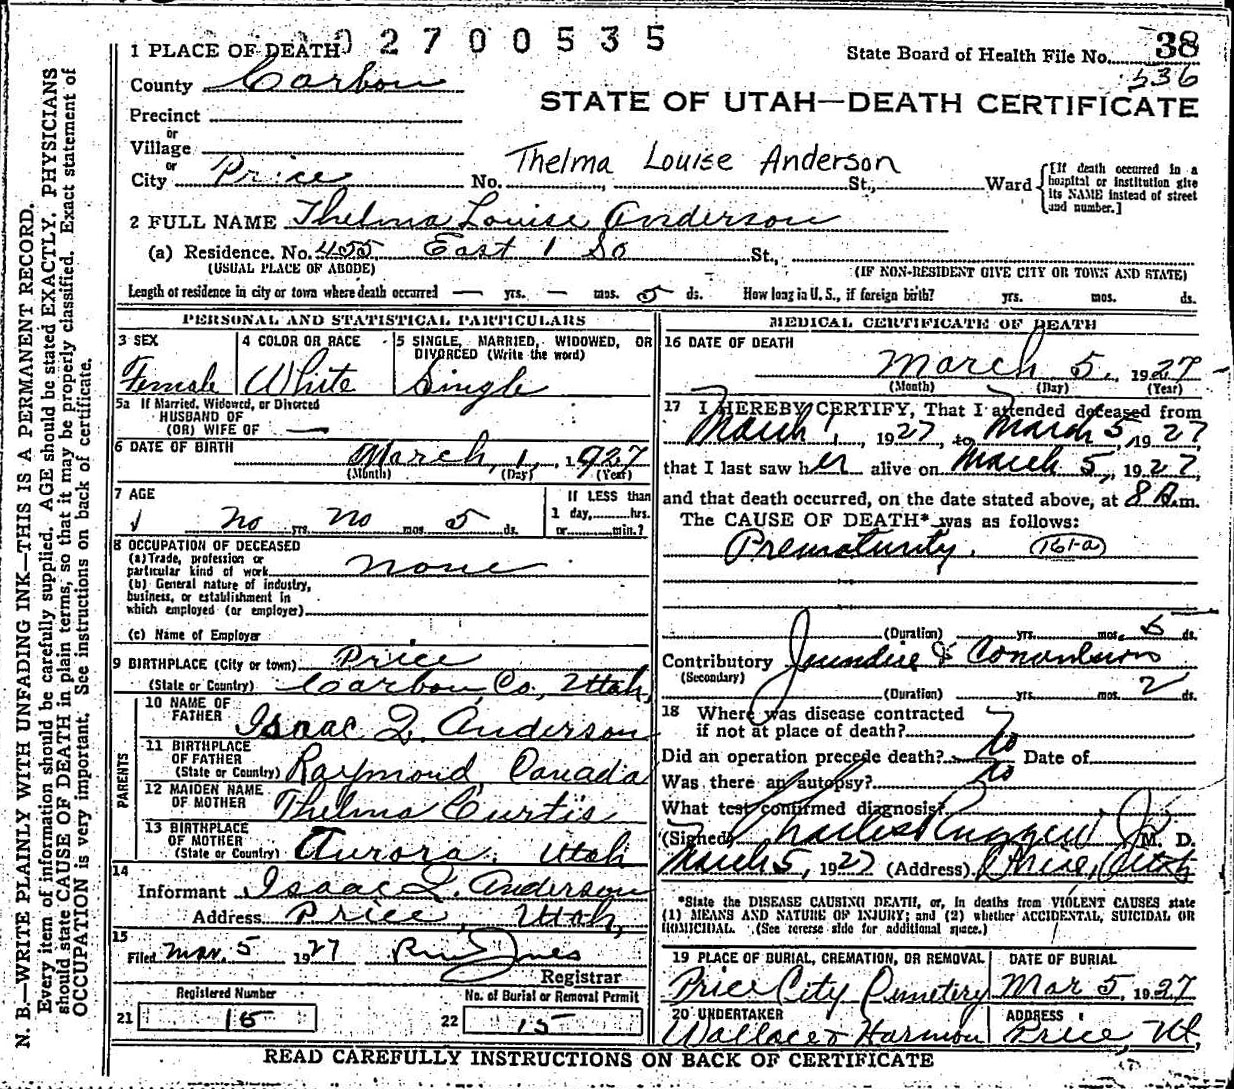 02700535
1 PLACE OF DEATH
State Board of Health File No. 38
536
County Carbon
STATE OF UTAH—DEATH CERTIFICATE
Precinct
or
Village
or
Thelma Louise Anderson
City Price No. , St., Ward
[If death occurred in a hospital or institution give its NAME instead of street and number.]
2 FULL NAME Thelma Louise Anderson
(a) Residence. No. 455 East 1 So St.,
(USUAL PLACE OF ABODE) (IF NON-RESIDENT GIVE CITY OR TOWN AND STATE)
Length of residence in city or town where death occurred — yrs. — mos. 5 ds. How long in U. S., if foreign birth? yrs. mos. ds.
PERSONAL AND STATISTICAL PARTICULARS
3 SEX 4 COLOR OR RACE 5 SINGLE, MARRIED, WIDOWED, OR
DIVORCED (Write the word)
Female White Single
5a If Married, Widowed, or Divorced
HUSBAND OF
(OR) WIFE OF —
6 DATE OF BIRTH March, 1, 1927
(Month) (Day) (Year)
7 AGE If LESS than
no yrs. no mos. 5 ds. 1 day, hrs.
or min.?
8 OCCUPATION OF DECEASED
(a) Trade, profession or
particular kind of work none
(b) General nature of industry,
business, or establishment in
which employed (or employer)
(c) Name of Employer
9 BIRTHPLACE (City or town) Price
(State or Country) Carbon Co., Utah,
PARENTS
10 NAME OF
FATHER Isaac L. Anderson
11 BIRTHPLACE
OF FATHER
(State or Country) Raymond Canada
12 MAIDEN NAME
OF MOTHER Thelma Curtis
13 BIRTHPLACE
OF MOTHER
(State or Country) Aurora. Utah
14
Informant Isaac L. Anderson
Address Price, Utah,
15
Filed Mar. 5 1927
Registrar
Registered Number No. of Burial or Removal Permit
21 15 22 15
MEDICAL CERTIFICATE OF DEATH
16 DATE OF DEATH
March 5, 1927
(Month) (Day) (Year)
17 I HEREBY CERTIFY, That I attended deceased from
March 1, 1927, to March 5, 1927
that I last saw her alive on March 5, 1927,
and that death occurred, on the date stated above, at 8 A.m.
The CAUSE OF DEATH* was as follows:
Prematurity. 161-a
(Duration) yrs. mos. 5 ds.
Contributory Jaundice & Convulsions
(Secondary)
(Duration) yrs. mos. 2 ds.
18 Where was disease contracted
if not at place of death?
Did an operation precede death? no Date of
Was there an autopsy? no
What test confirmed diagnosis?
(Signed) Charles Ruggeri Jr M. D.
March 5, 1927 (Address) Price, Utah
*State the DISEASE CAUSING DEATH, or, in deaths from VIOLENT CAUSES state
(1) MEANS AND NATURE OF INJURY; and (2) whether ACCIDENTAL, SUICIDAL OR
HOMICIDAL. (See reverse side for additional space.)
19 PLACE OF BURIAL, CREMATION, OR REMOVAL DATE OF BURIAL
Price City Cemetery Mar 5, 1927
20 UNDERTAKER ADDRESS
Wallace & Harmon Price, Ut,
READ CAREFULLY INSTRUCTIONS ON BACK OF CERTIFICATE
N. B.—WRITE PLAINLY WITH UNFADING INK—THIS IS A PERMANENT RECORD.
Every item of information should be carefully supplied. AGE should be stated EXACTLY. PHYSICIANS
should state CAUSE OF DEATH in plain terms, so that it may be properly classified. Exact statement of
OCCUPATION is very important. See instructions on back of certificate.